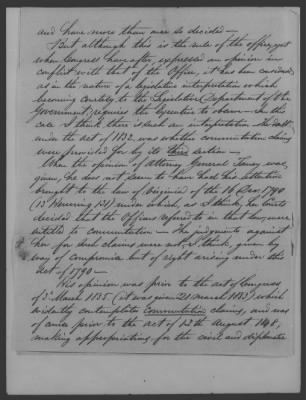 and have more than once so decided —
But although this is the rule of the office, yet
when Congress have after, expressed an opinion in
conflict with that of the Office, it has been considered,
as in the nature of a legislative interpretation which
becoming courtesy to the Legislative Department of the
Government, requires the Executive to observe — In this
case I think there is such an interpretation. The doubt
under the act of 1832. was whether commutation claims
were provided for by its third section —
When the opinion of Attorney General Taney was
given, he does not seem to have had his attention
brought to the law of Virginia of the 16 Dec. 1790
(13 Henning 131) under which, as I think, her Courts
decided that the Officers referred to in that law, were
entitled to commutation — The judgments against
her for such claims were not, I think, given by
way of compromise but of right arising under this
Act of 1790 —
His opinion was prior to the act of Congress
of 3d March 1835 (it was given 21 March 1833) which
evidently contemplates Commutation claims, and was
of course prior to the act of 12th August 1848,
making appropriations for the civil and diplomatic